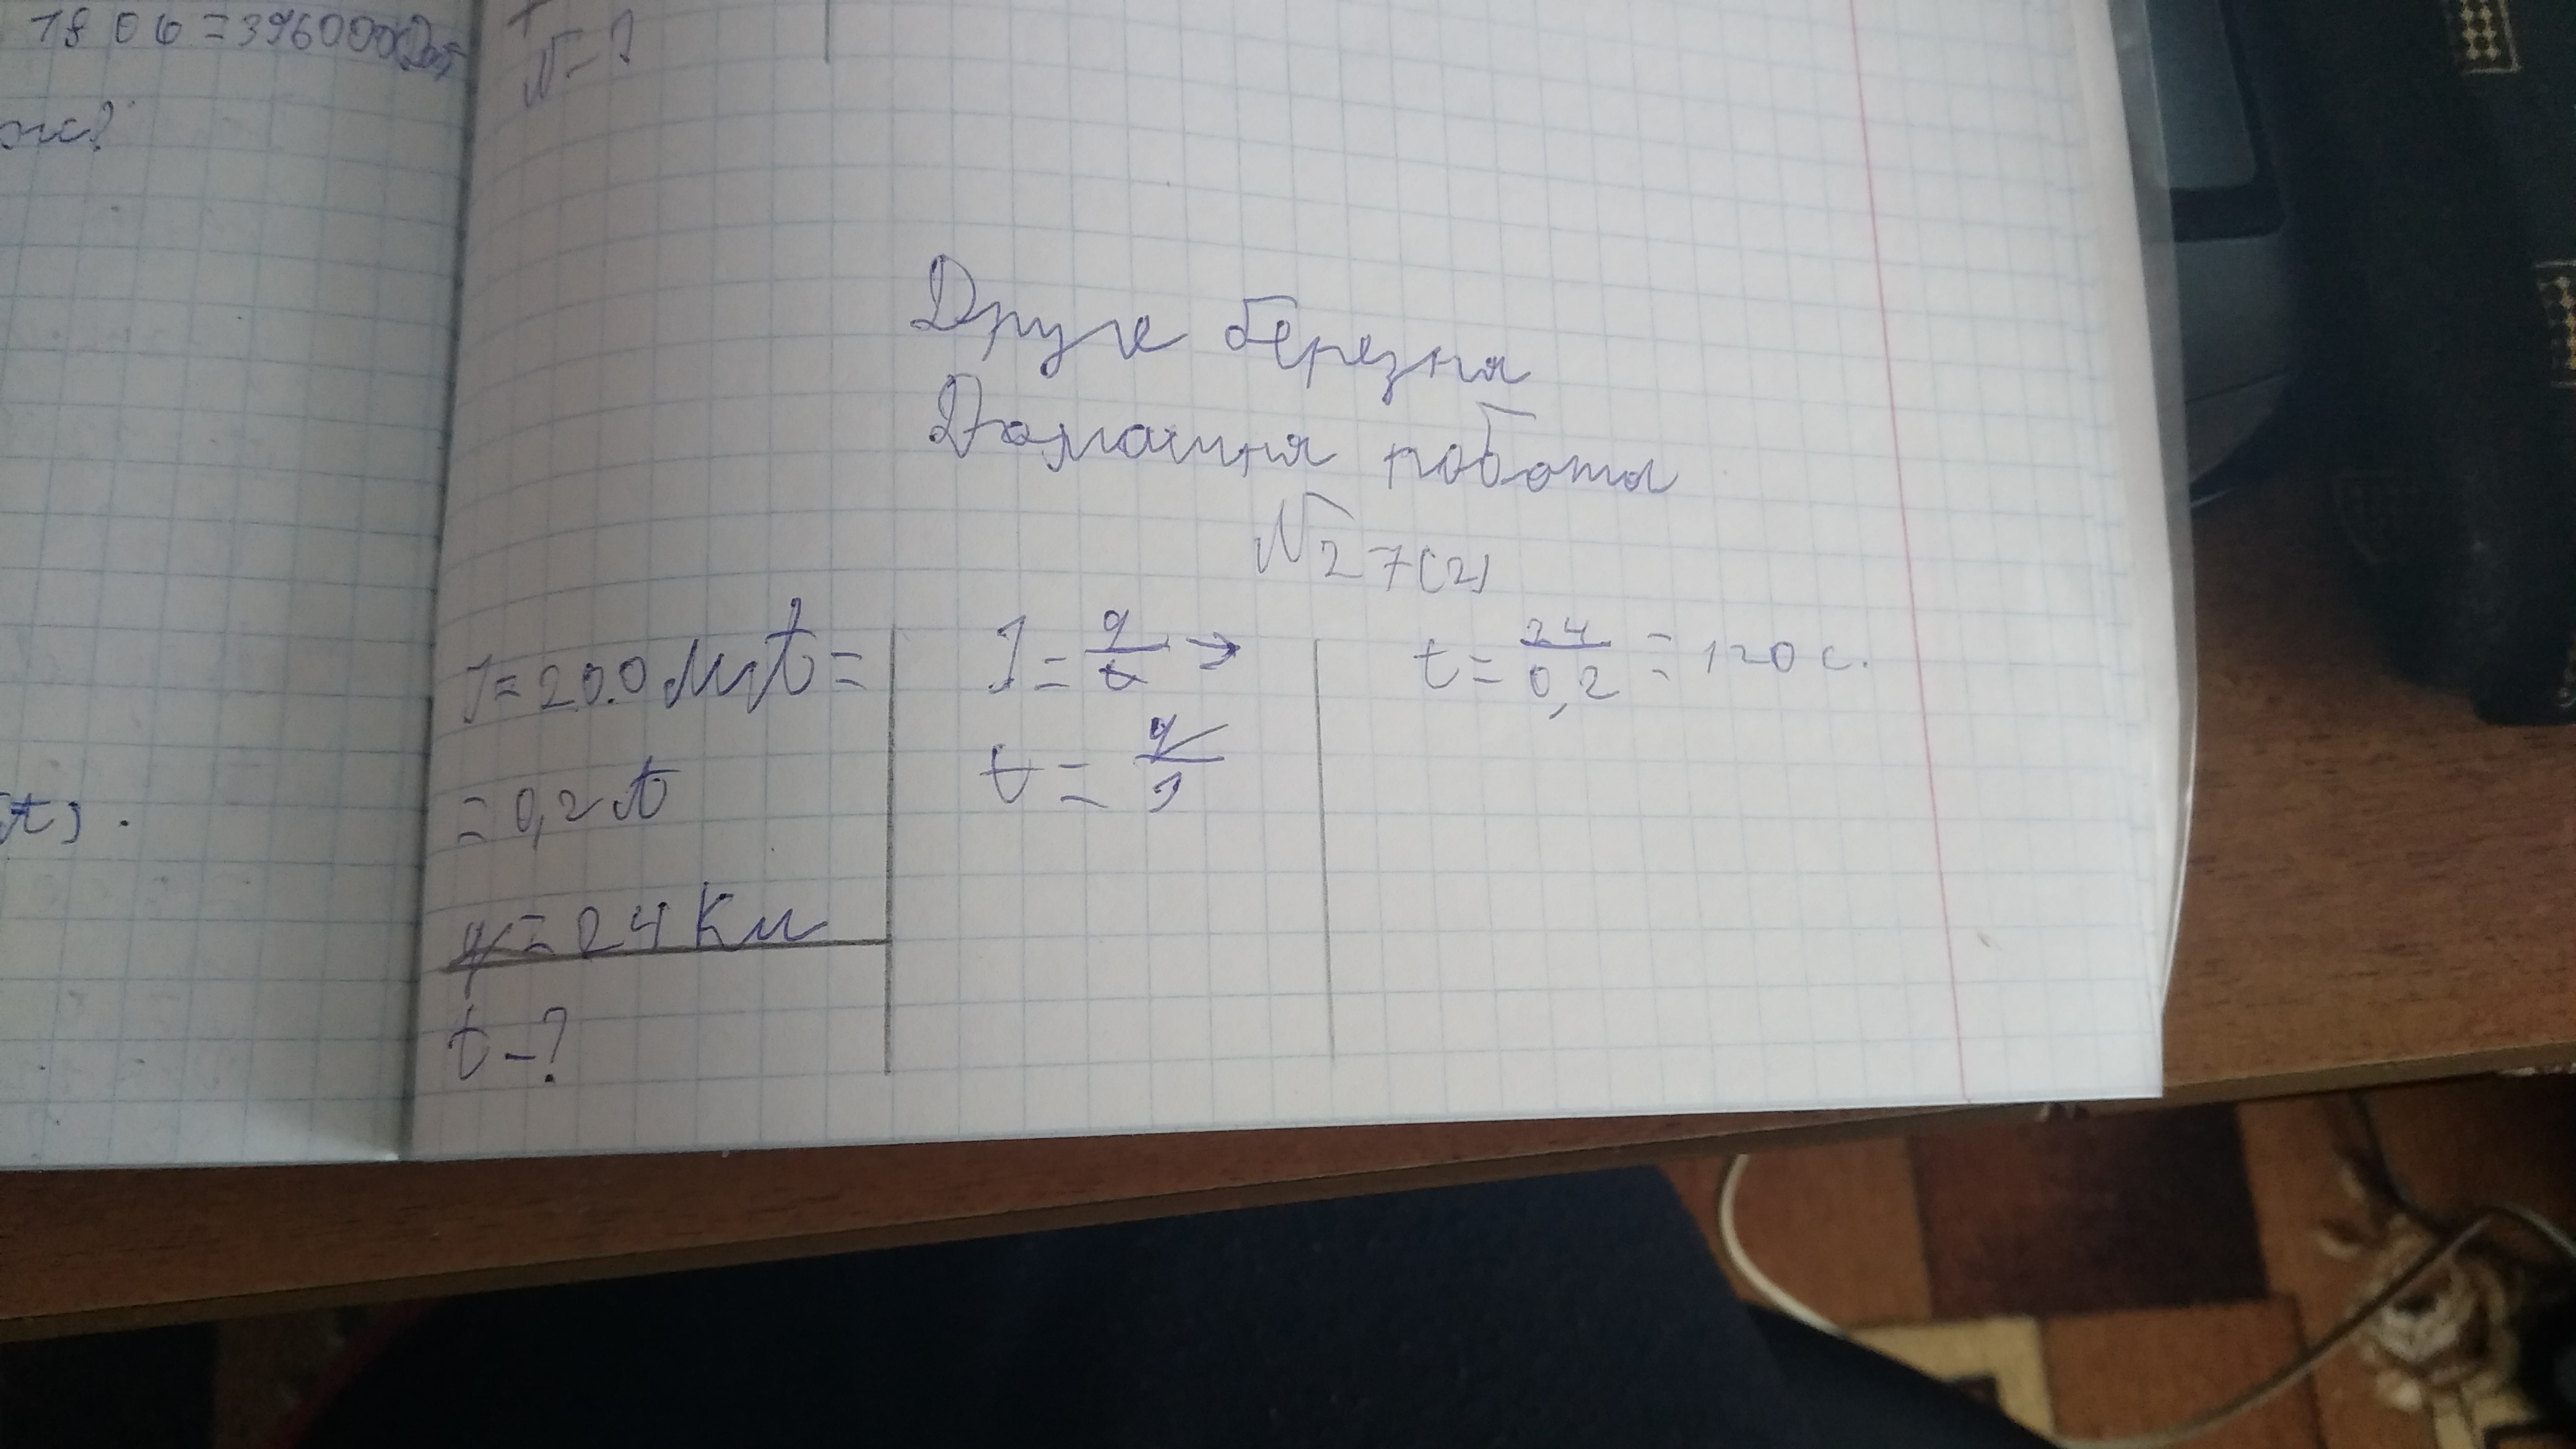 1806=396000(Дж)
N-?
ж?
Друге березня
Домашня робота
№27(2)
I=200мА=
=0,2А
q=24Кл
t-?
I=q/t →
t=q/I
t=24/0,2=120с.